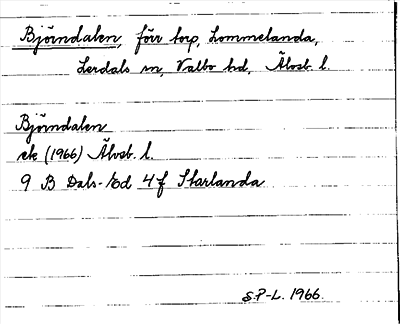 Björndalen, förr torp, Lommelanda,
Lerdals sn, Valbo hd, Älvsb. l.
Björndalen
ek (1966) Älvsb. l.
9 B Dals-Ed 4f Starlanda
S.P-L. 1966.